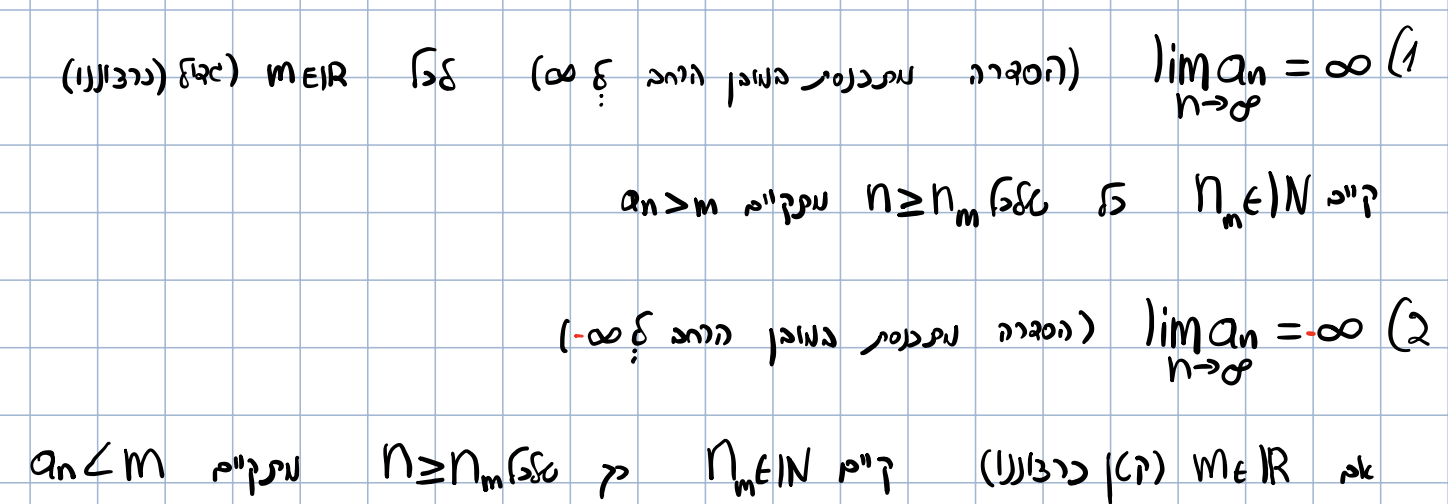 1) lim aₙ = ∞ (הסדרה מתכנסת במובן הרחב ל ∞) לכל m∈ℝ (גדול כרצוננו)
n→∞
קיים n_m∈ℕ כל שלכל n≥n_m מתקיים aₙ>m
2) lim aₙ = -∞ (הסדרה מתכנסת במובן הרחב ל ∞-)
n→∞
אם m∈ℝ (קטן כרצוננו) קיים n_m∈ℕ כך שלכל n≥n_m מתקיים aₙ<m